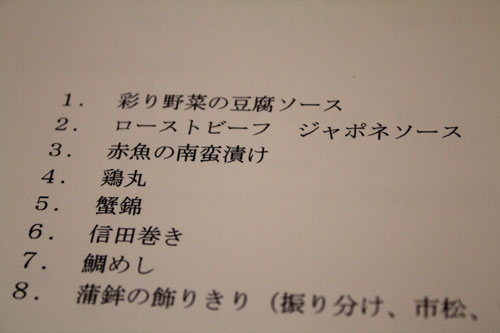 １．　彩り野菜の豆腐ソース
２．　ローストビーフ　ジャポネソース
３．　赤魚の南蛮漬け
４．　鶏丸
５．　蟹錦
６．　信田巻き
７．　鯛めし
８．　蒲鉾の飾りきり（振り分け、市松、